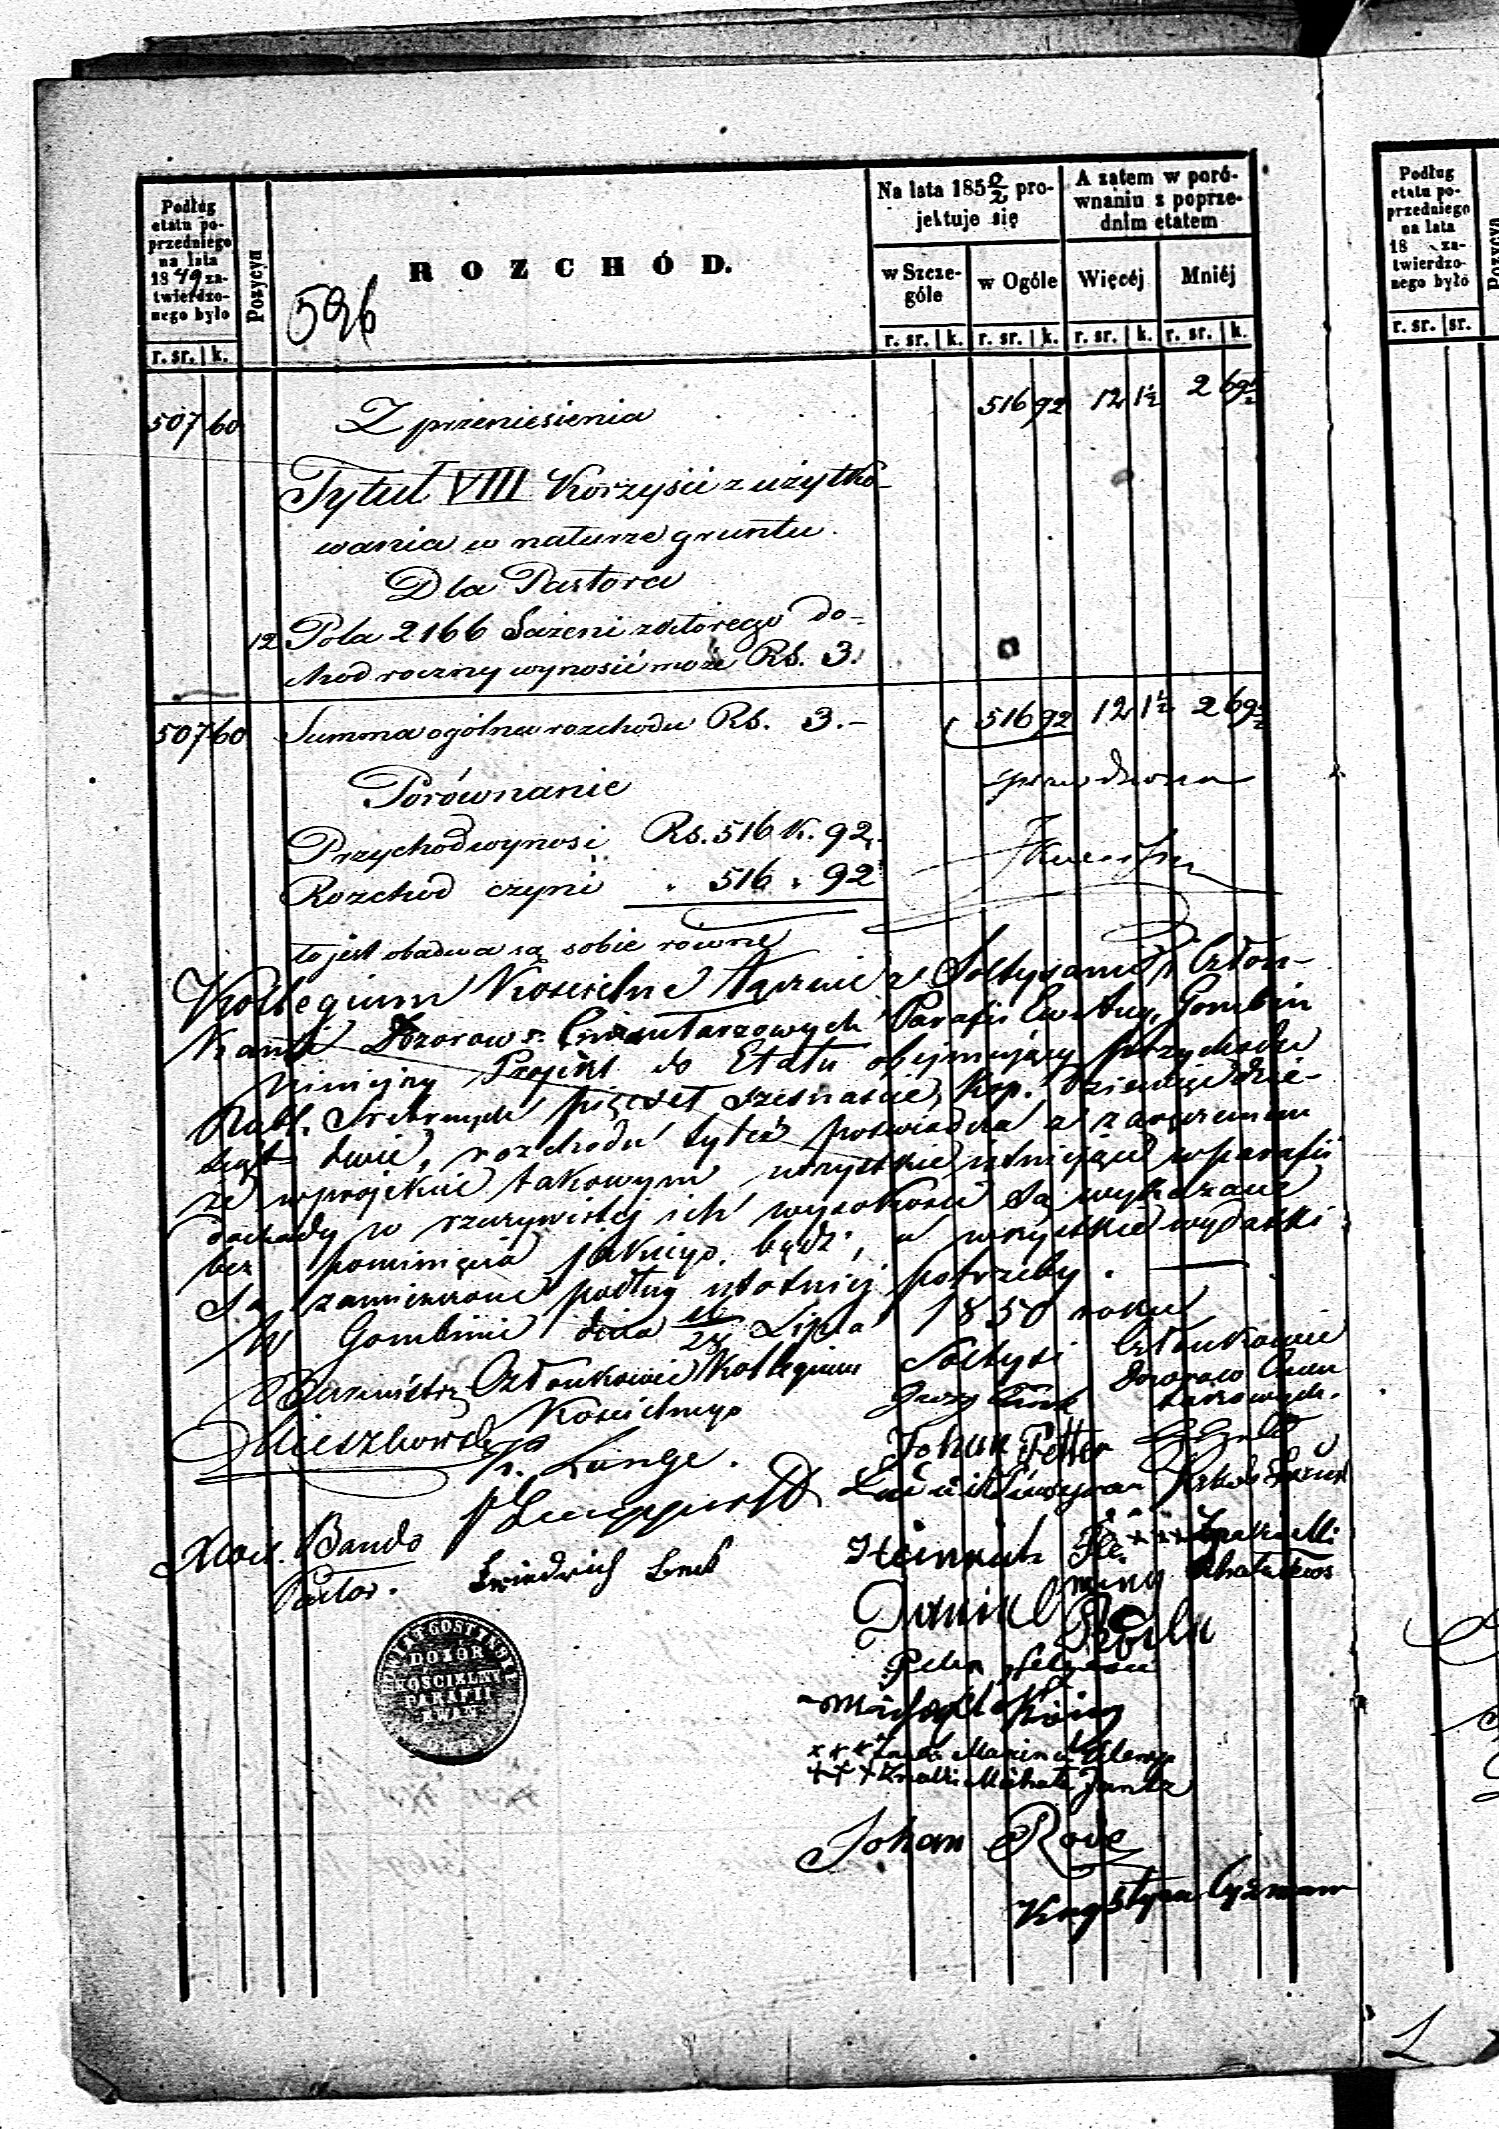 Podług etatu poprzedniego na lata 1849 zatwierdzonego było
Pozycya
ROZCHÓD.
Na lata 185 0/2 projektuje się
A zatem w porównaniu z poprzednim etatem
w Szczególe
w Ogóle
Więcéj
Mniéj
r. sr. k.
r. sr. k. r. sr. k. r. sr. k. r. sr. k.
596
507 60 Z przeniesienia 516 92 12 1½ 2 69½
Tytuł VIII Korzyści z użytko-
wania w naturze gruntu.
Dla Pastora
12 Pola 2166 Sażeni z którego do-
chód roczny wynosić może Rs. 3.
507 60 Summa ogólna rozchodu Rs. 3.— 516 92 12 1½ 2 69½
Porównanie
Przychód wynosi Rs. 516 k. 92.
Rozchód czyni " 516 " 92
to jest obadwa są sobie równe
Kollegium Kościelne łącznie z Sołtysami i Człon-
kami Dozorów Cmentarzowych Parafii Ew. Aug. Gombin
niniejszy Projekt do Etatu obejmujący przychodu
Rubl. Srebrnych pięćset szesnaście, kop. dziewięćdzie-
siąt dwie, rozchodu tyleż poświadcza z zaręczeniem
że w projekcie takowym wszystkie istniejące w parafii
dochody w rzeczywistej ich wysokości są wykazane
bez pominięcia jakiego bądź, a wszystkie wydatki
są zamierzone podług istotnej potrzeby.
W Gombinie dnia 16/28 Lipca 1850 roku
Burmistrz Członkowie Kollegium Sołtysi Członkowie
Kościelnego Dozorów Cmen
tarzowych.
Mieszkowski
K. Lange.
Johan Petter
Xiądz. Bando
Pastor.
Friedrich
Heinrich Fle
ming
Daniel
Michael König
+++ Znaki Michała Jantz
Johan Rode
Krystyan
DOZÓR
KOŚCIELNY
PARAFII
EWAN
Podług etatu poprzedniego na lata 18 zatwierdzonego było
Pozycya
r. sr. sr.